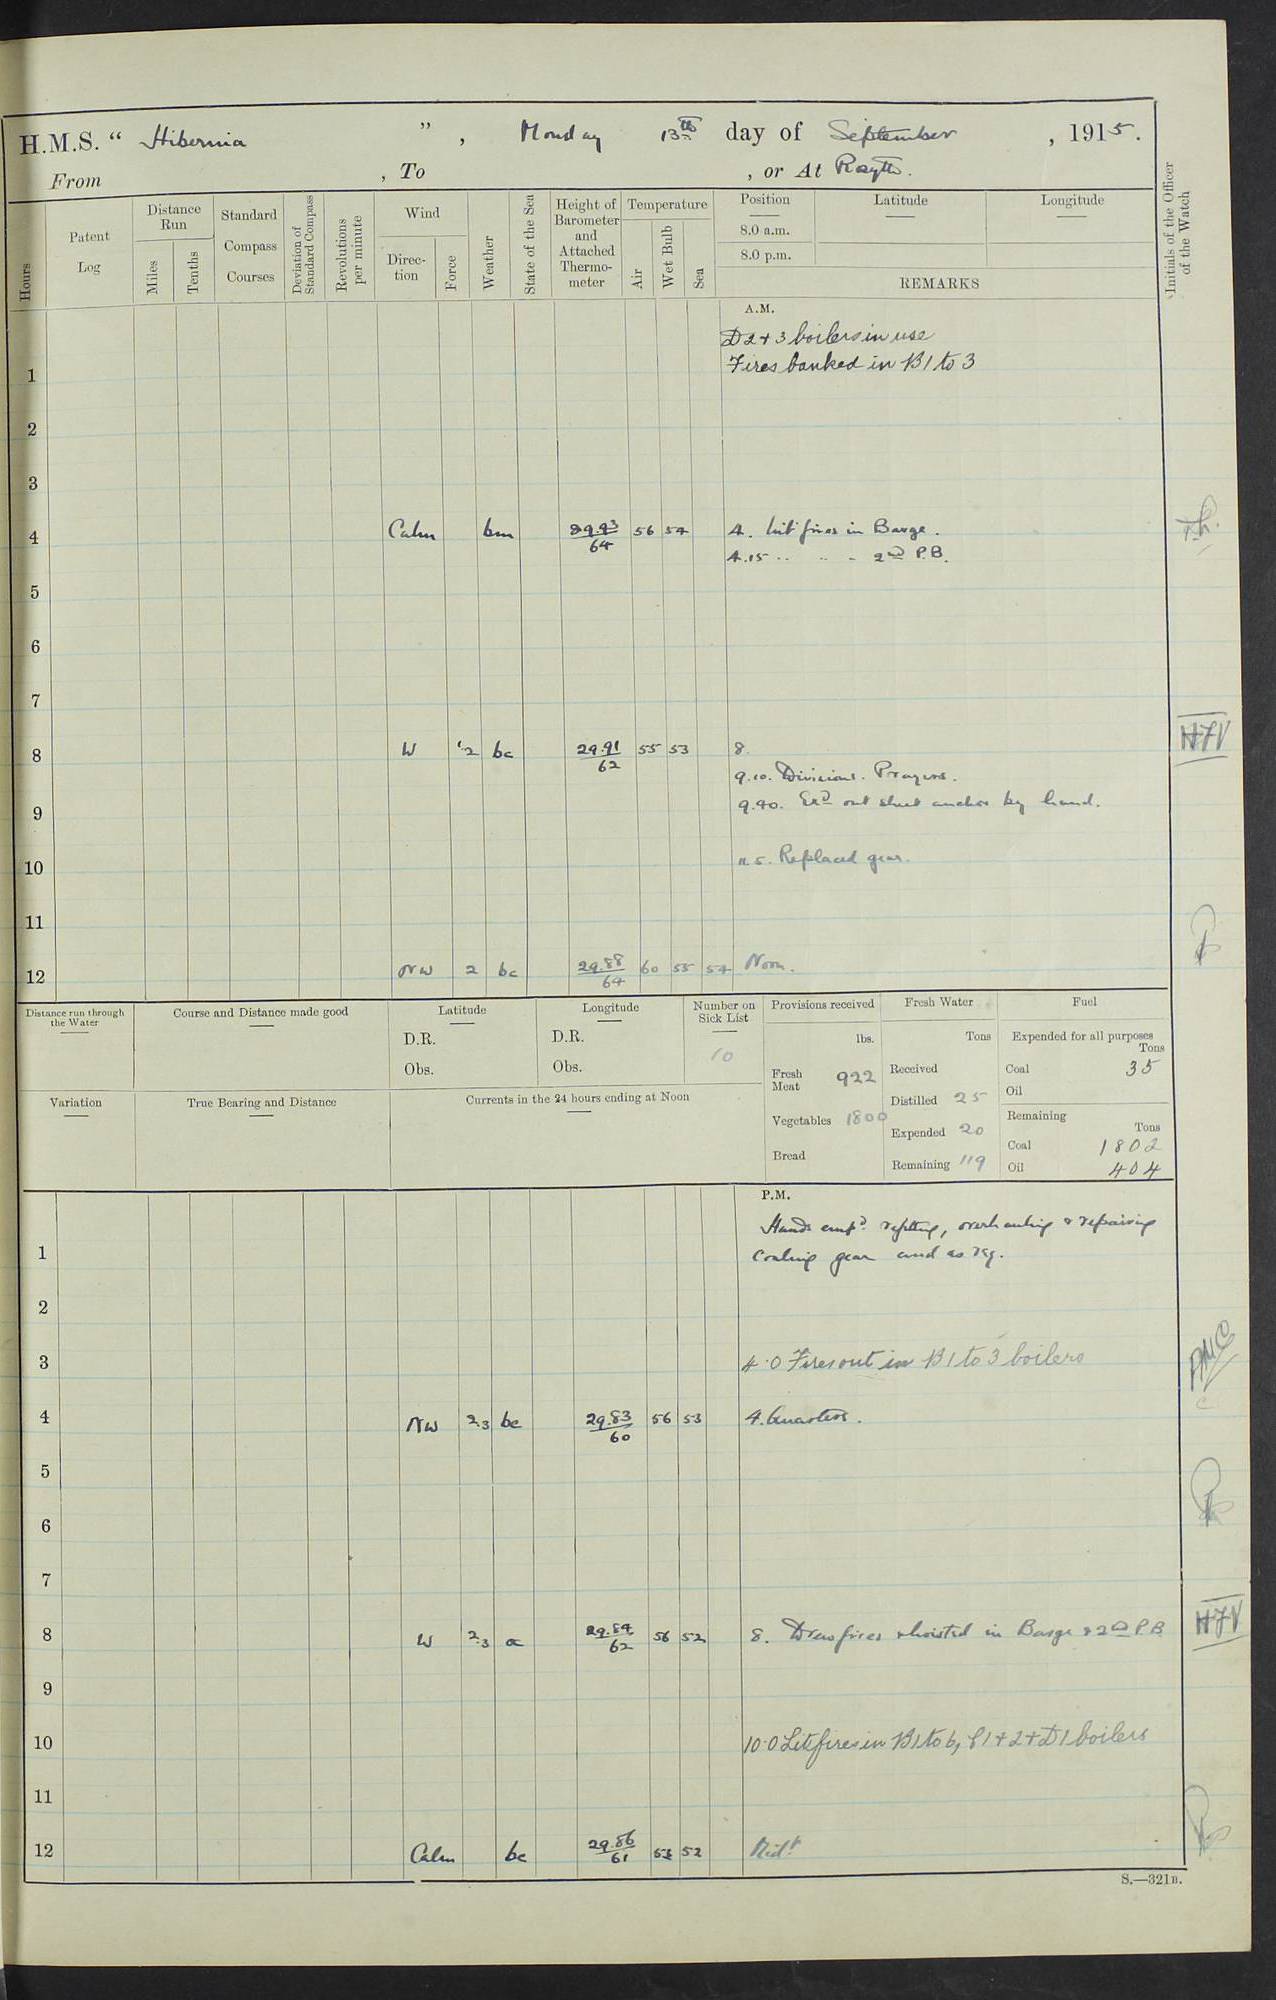 H.M.S. “ Hibernia ” , Monday 13th day of September , 1915.
From , To , or At Rosyth.
Hours
Patent Log
Distance Run
Miles
Tenths
Standard Compass Courses
Deviation of Standard Compass
Revolutions per minute
Wind
Direc-tion
Force
Weather
State of the Sea
Height of Barometer and Attached Thermo-meter
Temperature
Air
Wet Bulb
Sea
Position
8.0 a.m.
8.0 p.m.
Latitude
Longitude
REMARKS
Initials of the Officer of the Watch
A.M.
D 2 + 3 boilers in use
1 Fires banked in B 1 to 3
2
3
4 Calm bm 29.93/64 56 54 4. Lit fires in Barge.
4.15 " " " 2nd P.B.
5
6
7
8 W 1.2 bc 29.91/62 55 53 8. HFV
9.10. Divisions. Prayers.
9 9.40. Exd out sheet anchor by hand.
10 11.5. Replaced gear.
11
12 NW 2 bc 29.88/64 60 55 54 Noon.
Distance run through the Water
Course and Distance made good
Latitude
D.R.
Obs.
Longitude
D.R.
Obs.
Number on Sick List
10
Provisions received
lbs.
Fresh Meat 922
Vegetables 1800
Bread
Fresh Water
Tons
Received
Distilled 25
Expended 20
Remaining 119
Fuel
Expended for all purposes
Tons
Coal 35
Oil
Remaining
Tons
Coal 1802
Oil 404
Variation
True Bearing and Distance
Currents in the 24 hours ending at Noon
P.M.
Hands empd refitting, overhauling & repairing
1 Coaling gear and as req.
2
3 4.0 Fires out in B 1 to 3 boilers
4 NW 2.3 bc 29.83/60 56 53 4. Quarters.
5
6
7
8 W 2.3 oc 29.84/62 56 52 8. Drew fires & hoisted in Barge & 2nd P.B. HFV
9
10 10.0 Lit fires in B 1 to 6, C 1 + 2 + D 1 boilers
11
12 Calm bc 29.86/61 53 52 Midt
S.—321B.